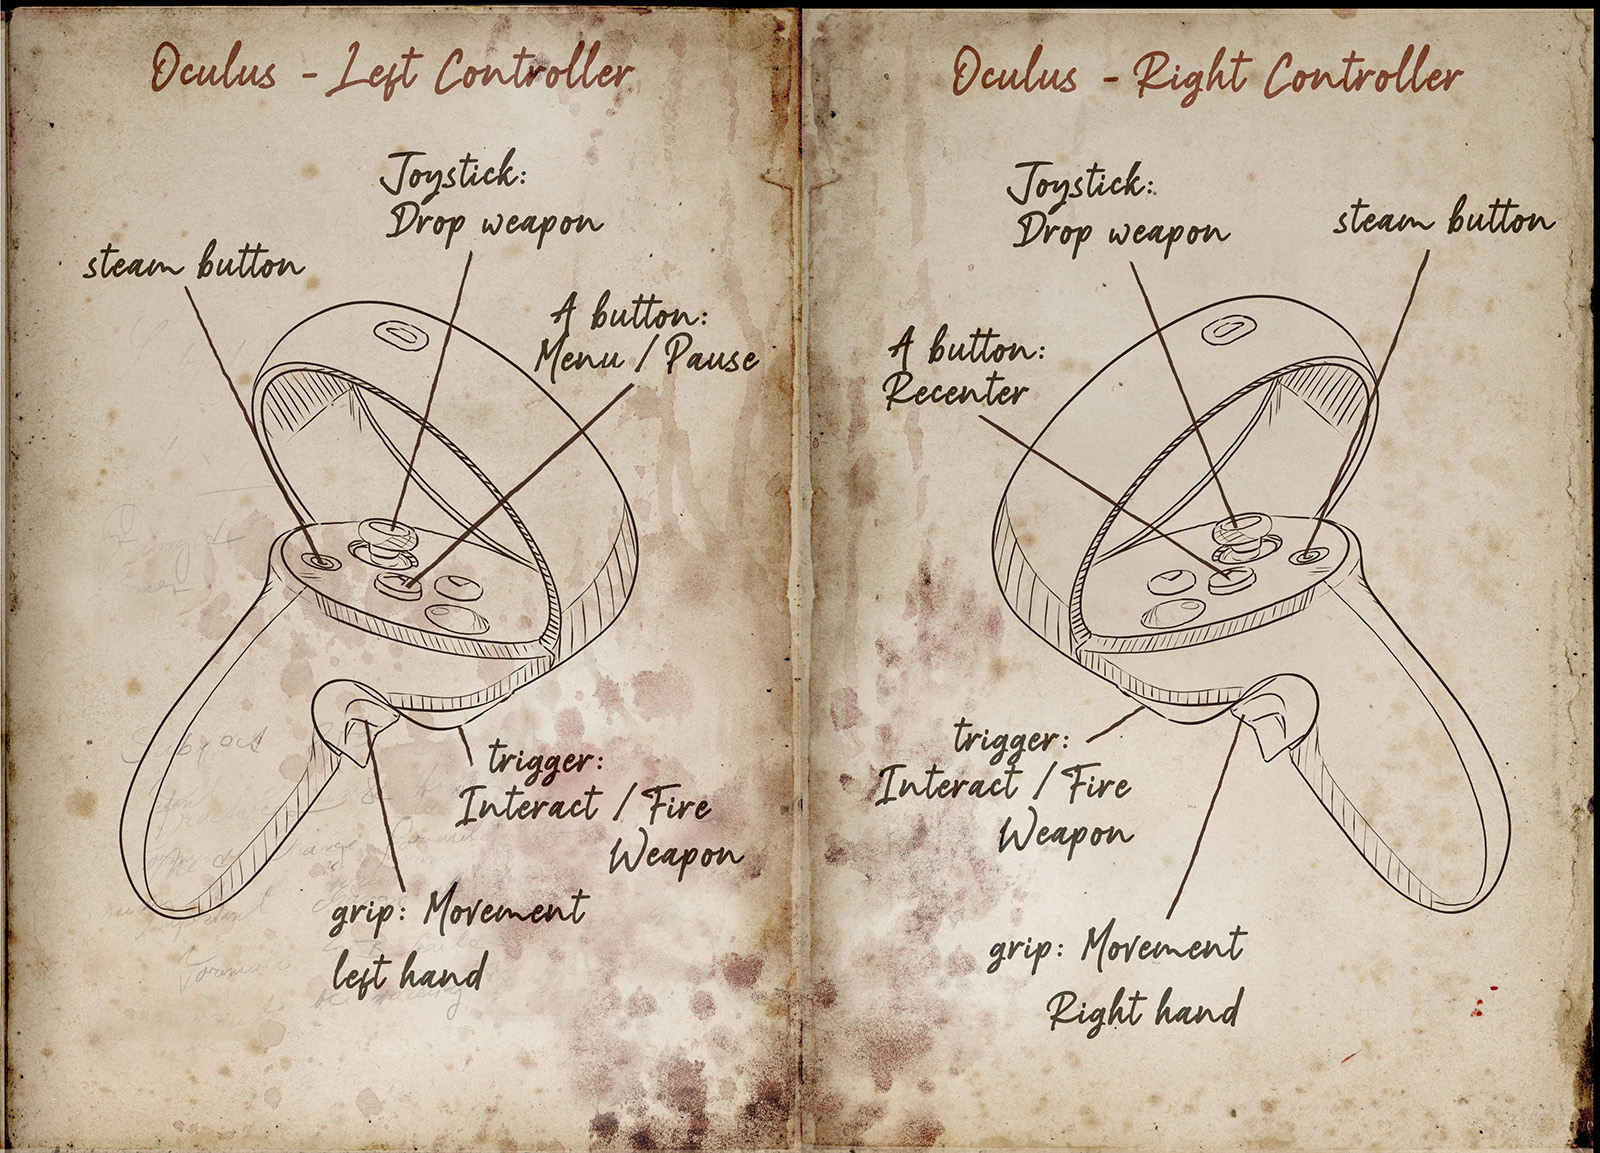 Oculus - Left Controller
Joystick:
Drop weapon
steam button
A button:
Menu / Pause
trigger:
Interact / Fire
Weapon
grip: Movement
left hand
Oculus - Right Controller
Joystick:
Drop weapon
steam button
A button:
Recenter
trigger:
Interact / Fire
Weapon
grip: Movement
Right hand